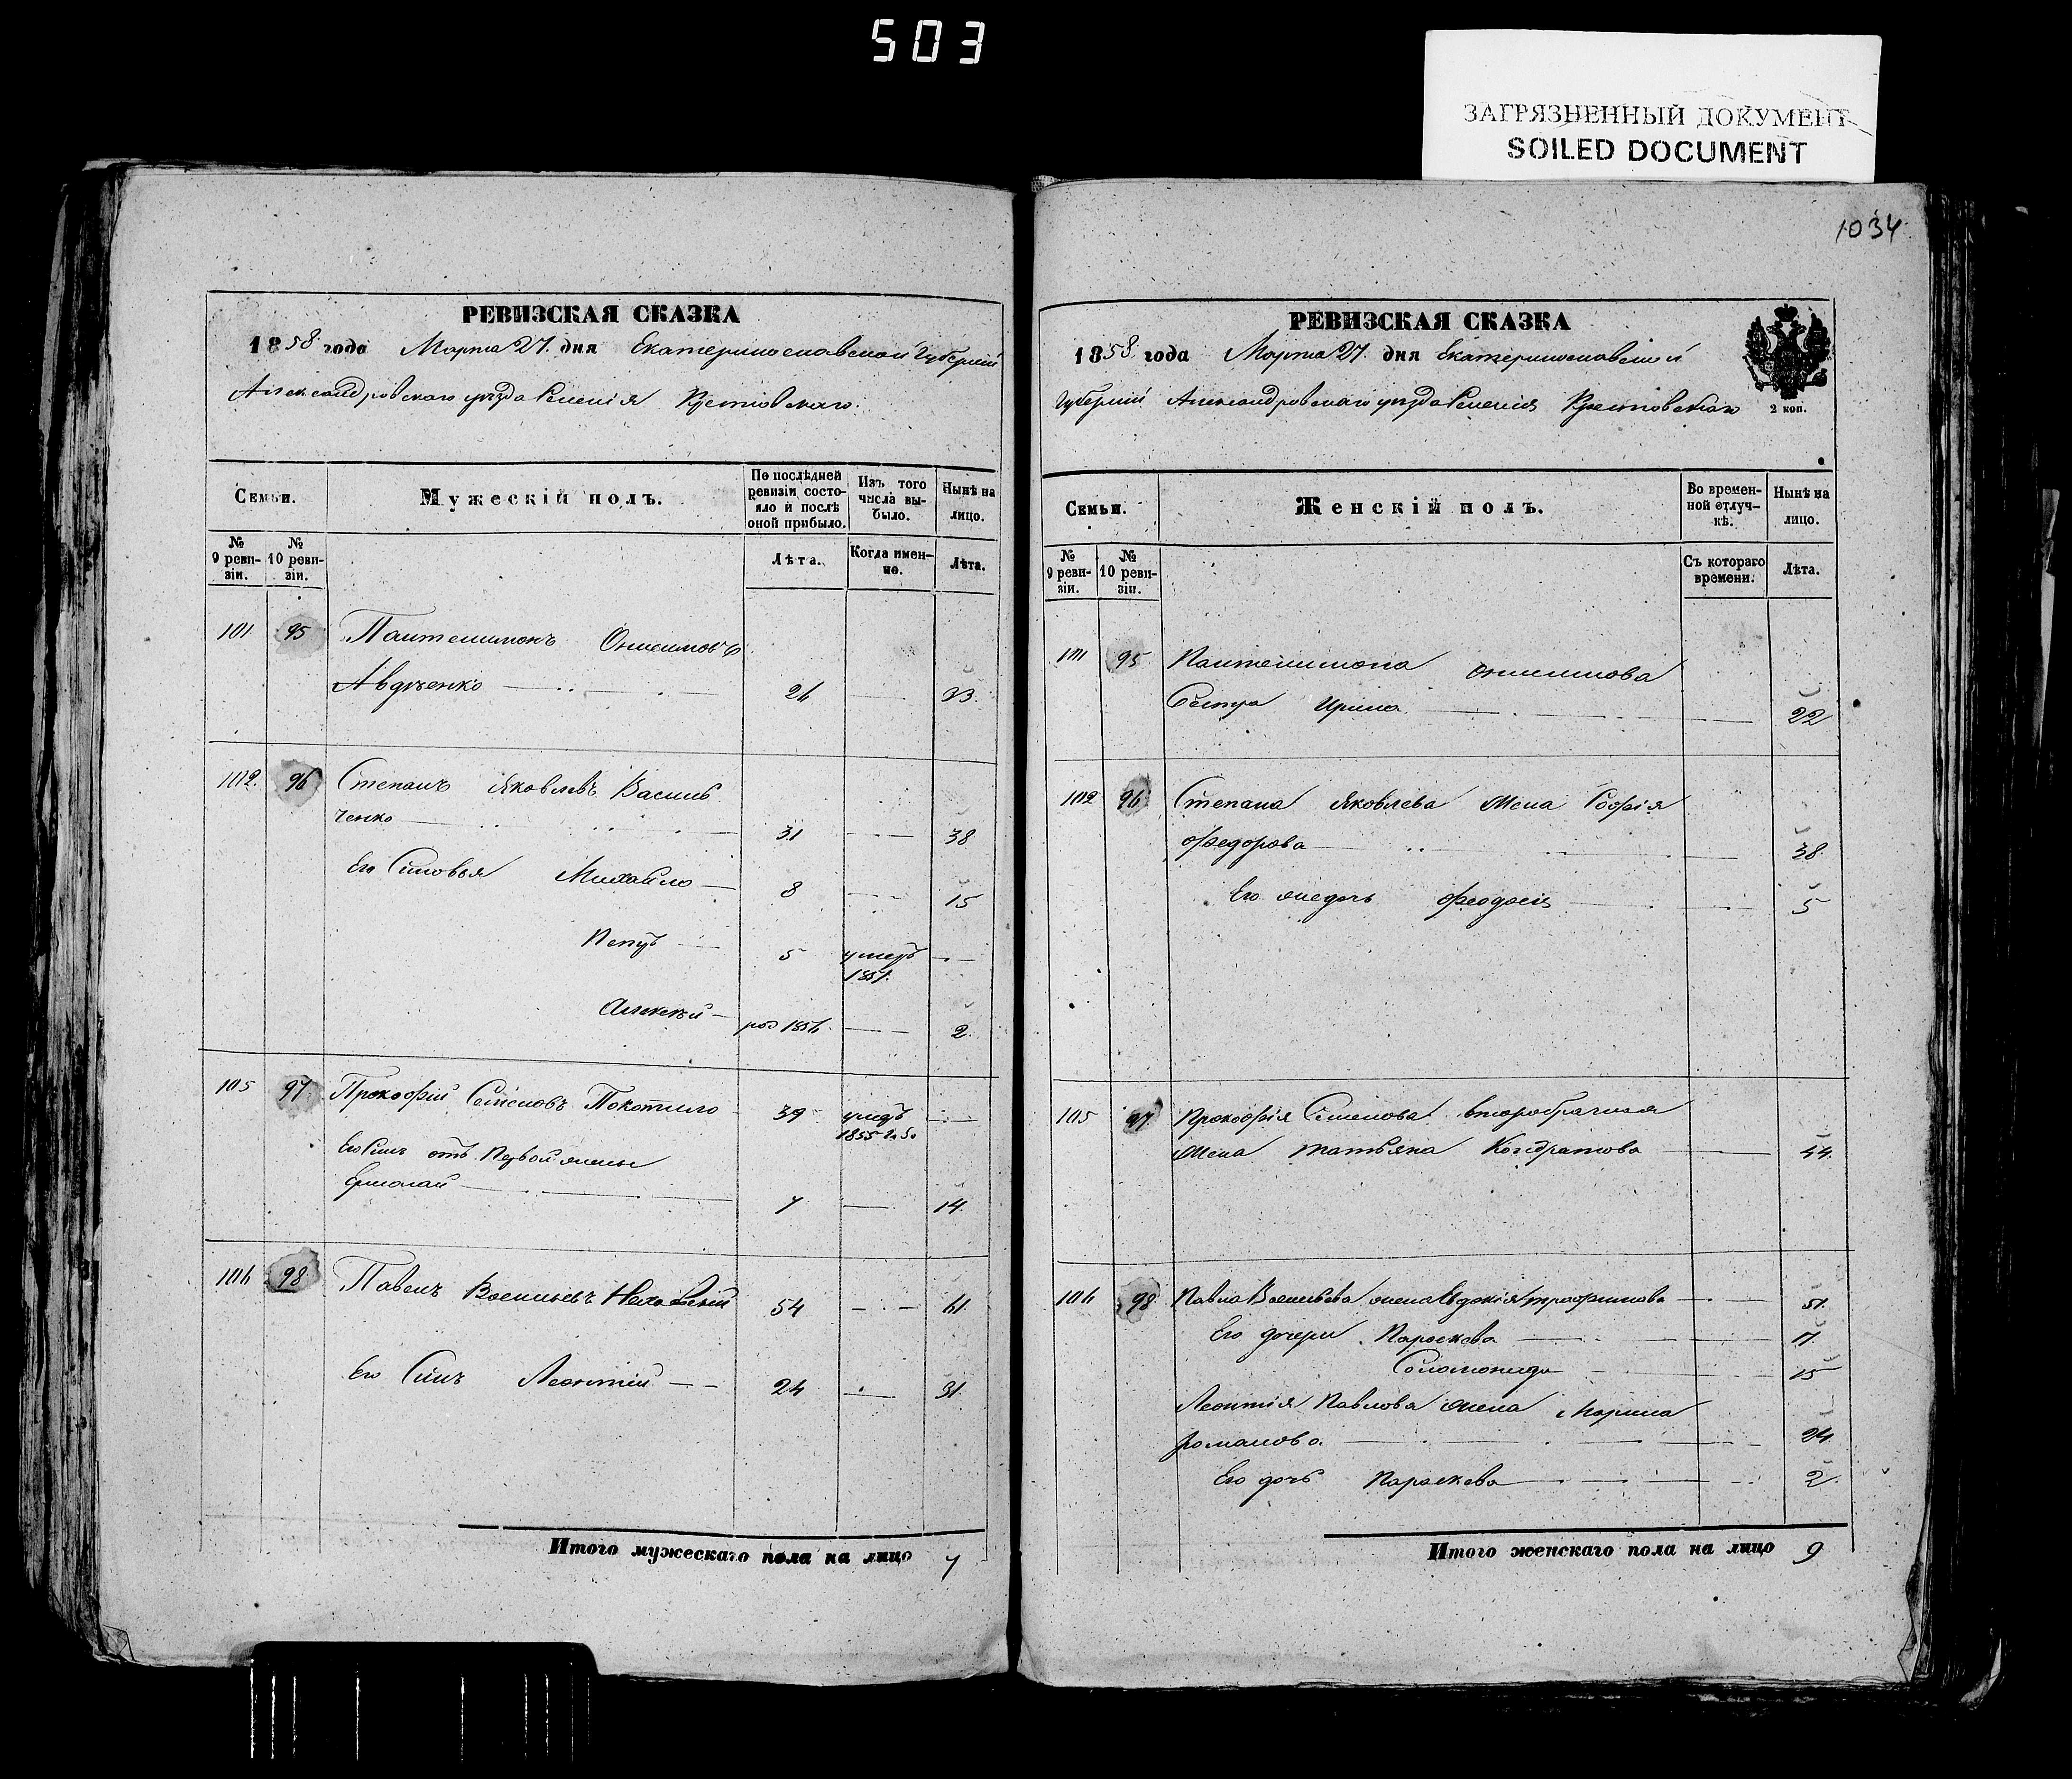 503
ЗАГРЯЗНЕННЫЙ ДОКУМЕНТ
SOILED DOCUMENT
РЕВИЗСКАЯ СКАЗКА
1858 года Марта 27 дня Екатеринославской Губерніи
Александровскаго уезда Селенія Крестовскаго
Семьи.
Мужескій полъ.
По послѣдней ревизіи состояло и послѣ оной прибыло.
Изъ того числа выбыло.
Нынѣ на лицо.
№ 9 ревизіи.
№ 10 ревизіи.
Лѣта.
Когда именно.
Лѣта.
101 95 Пантелимонъ Онисимовъ
Авдѣенко 26 33
102. 96 Степанъ Яковлевъ Василь
ченко 31 38
Его Сыновья Михайло 8 15
Петръ 5 умеръ 1851
Алексѣй род 1856 2
105 97 Прокофій Семеновъ Покотило 39 умеръ 1855 г.
Его Сынъ отъ Первой жены
Ермолай 7 14
106 98 Павелъ Васильевъ 54 61
Его Сынъ Леонтій 24 31
Итого мужескаго пола на лицо 7
1034
РЕВИЗСКАЯ СКАЗКА
1858 года Марта 27 дня Екатеринославской
Губерніи Александровскаго уезда Селенія Крестовскаго
2 коп.
Семьи.
Женскій полъ.
Во временной отлучкѣ.
Нынѣ на лицо.
№ 9 ревизіи.
№ 10 ревизіи.
Съ котораго времени.
Лѣта.
101 95 Пантелимона Онисимова
Сестра Ирина 22
102 96 Степана Яковлева Жена Софія
Федорова 38
Его же дочь Феодосія 5
105 97 Прокофія Семенова второбрачная
Жена Татьяна Кондратова 44
106 98 Павла Васильева жена Евдокія Трофимова 51
Его дочери Параскева 17
Соломонида 15
Леонтія Павлова жена Марина
Романова 24
Его дочь Параскева 2
Итого женскаго пола на лицо 9